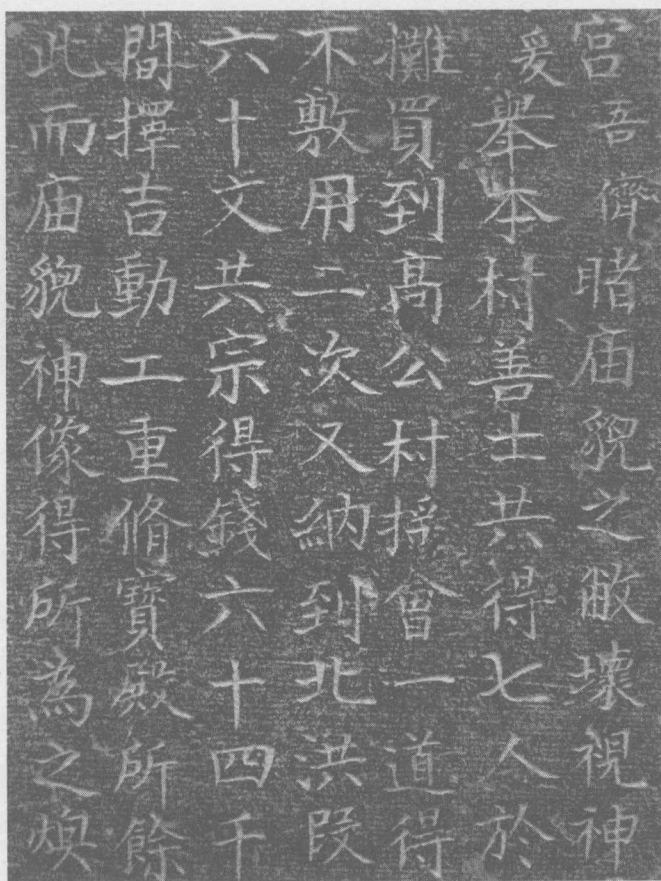 宫吾儕暏庙貌之敝壞視神
爰舉本村善士共得七人於
攤買到高公村揺會一道得
不敷用二次又納到北洪段
六十文共宗得錢六十四千
間擇吉動工重脩寳殿所餘
此而庙貌神像得所為之煥